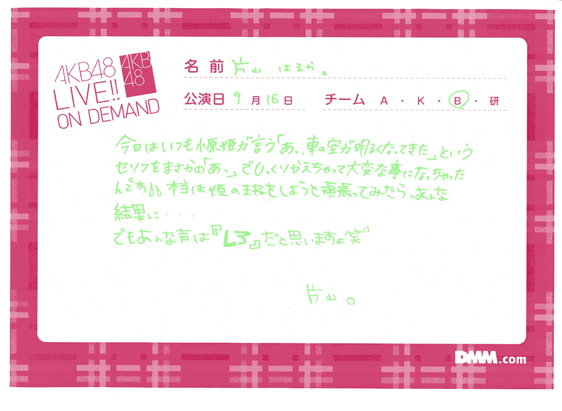 AKB48
LIVE!!
ON DEMAND
AKB
48
名前 片山 はるか。
公演日 9月16日 チーム A・K・B・研
今日はいつも小原姫が言う「あ、、東の空が明るくなってきた」という
セリフをまさかの「あ、」でひっくりかえちゃって大変な事になっちゃった
んです 本当は姫のマネをしようと頑張ってみたら、あんな
結果に・・・
でもあんな声は『L3』だと思いますよ笑
片山。
DMM.com